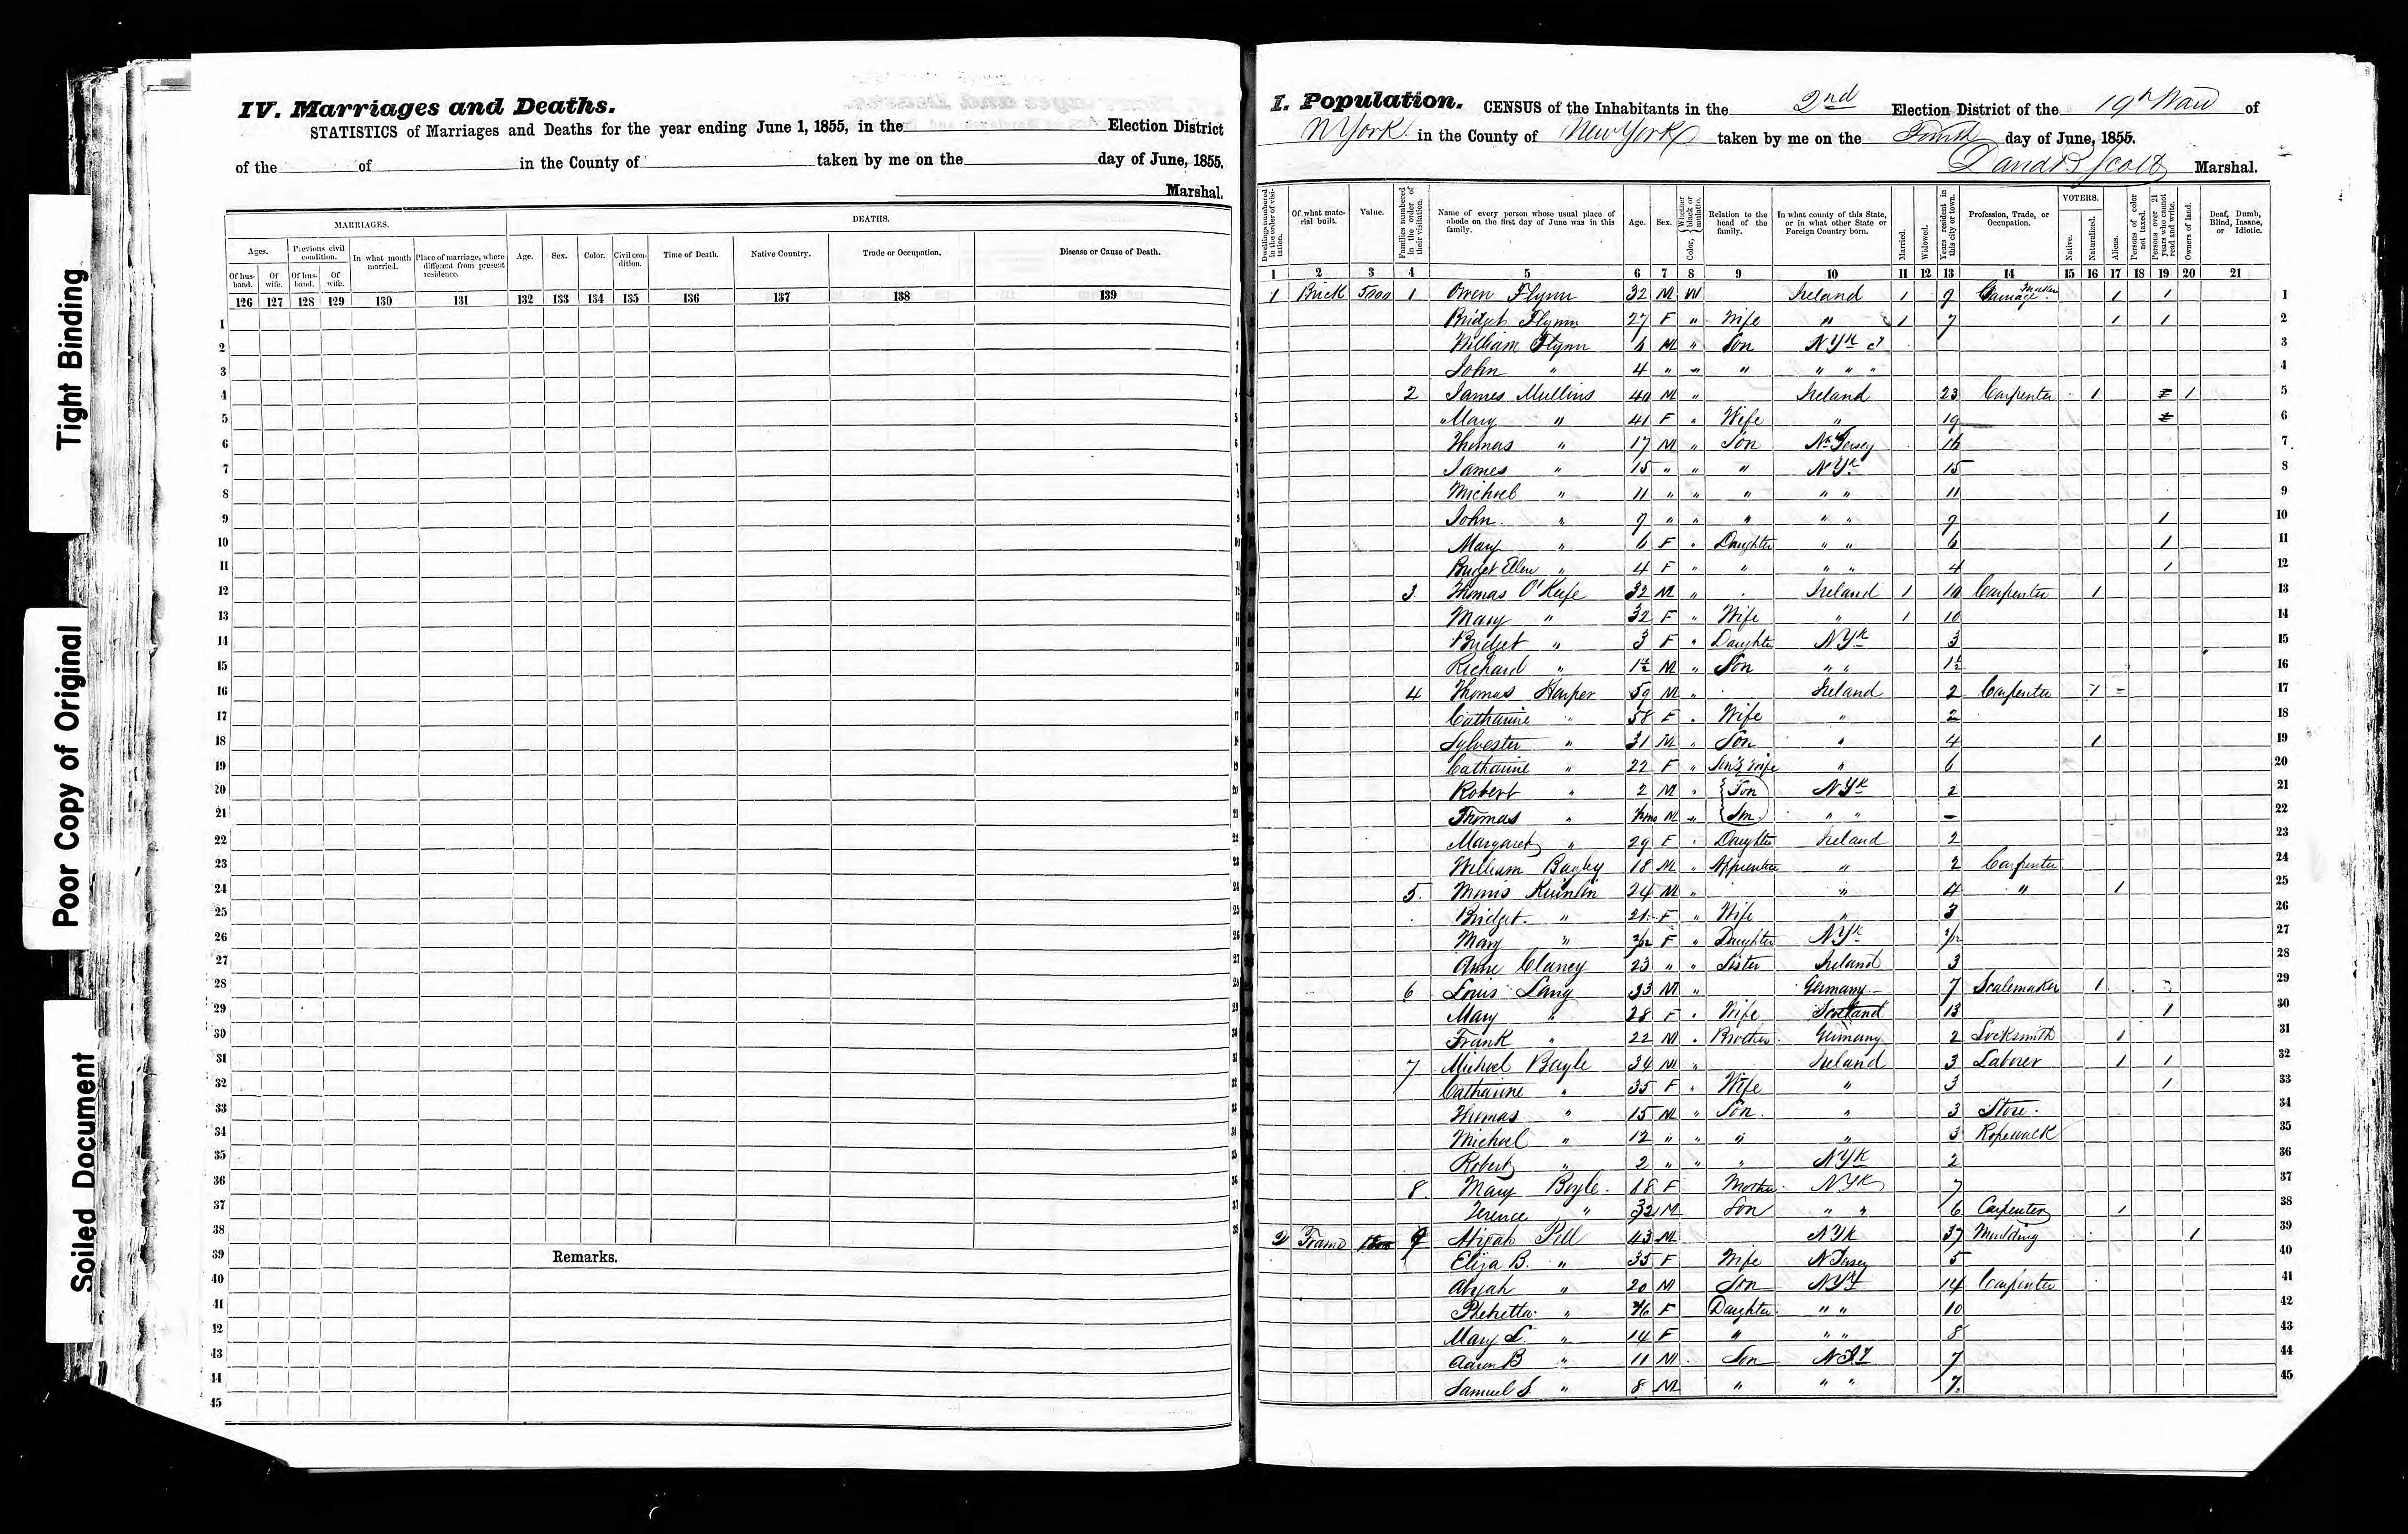 Tight Binding
Poor Copy of Original
Soiled Document
IV. Marriages and Deaths.
STATISTICS of Marriages and Deaths for the year ending June 1, 1855, in the Election District
of the of in the County of taken by me on the day of June, 1855.
Marshal.
MARRIAGES. DEATHS.
Ages. Previous civil condition. In what month married. Place of marriage, where different from present residence. Age. Sex. Color. Civil condition. Time of Death. Native Country. Trade or Occupation. Disease or Cause of Death.
Of husband. Of wife. Of husband. Of wife.
126 127 128 129 130 131 132 133 134 135 136 137 138 139
1
2
3
4
5
6
7
8
9
10
11
12
13
14
15
16
17
18
19
20
21
22
23
24
25
26
27
28
29
30
31
32
33
34
35
36
37
38
39 Remarks.
40
41
42
43
44
45
I. Population. CENSUS of the Inhabitants in the 2nd Election District of the 19th Ward of
N York in the County of New York taken by me on the Fourth day of June, 1855.
David B Scott Marshal.
Dwellings numbered in the order of visitation. Of what material built. Value. Families numbered in the order of their visitation. Name of every person whose usual place of abode on the first day of June was in this family. Age. Sex. Color, Whether black or mulatto. Relation to the head of the family. In what county of this State, or in what other State or Foreign Country born. Married. Widowed. Years resident in this city or town. Profession, Trade, or Occupation. VOTERS. Native. Naturalized. Aliens. Persons of color not taxed. Persons over 21 years who cannot read and write. Owners of land. Deaf, Dumb, Blind, Insane, or Idiotic.
1 2 3 4 5 6 7 8 9 10 11 12 13 14 15 16 17 18 19 20 21
1 Brick 5000 1 Owen Flynn 32 M W Ireland 1 9 Carriage Maker 1 1 1
Bridget Flynn 27 F " Wife " 1 7 1 1 2
William Flynn 6 M " Son N Yk 3
John " 4 " " " " " " 4
2 James Mullins 40 M " Ireland 23 Carpenter 1 1 5
Mary " 41 F " Wife " 19 6
Thomas " 17 M " Son N Jersey 16 7
James " 15 " " " N Yk 15 8
Michael " 11 " " " " " 11 9
John " 9 " " " " " 9 1 10
Mary " 6 F " Daughter " " 6 1 11
Ellen " 4 F " " " " 4 1 12
3 Thomas O'Keefe 32 M " Ireland 1 10 Carpenter 1 13
Mary " 32 F " Wife " 1 10 14
Bridget " 3 F " Daughter N Yk 3 15
Richard " 1½ M " Son " " 1½ 16
4 Thomas Harper 59 M " Ireland 2 Carpenter 17
Catharine " 58 F " Wife " 2 18
Sylvester " 31 M " Son " 4 1 19
Catharine " 22 F " Son's Wife " 6 20
Robert " 2 M " Son N Yk 2 21
Thomas " M " Son " " – 22
Margaret " 29 F " Daughter Ireland 2 23
William Bagley 18 M " Apprentice " 2 Carpenter 24
5 24 M " " 4 " 1 25
Bridget " 21 F " Wife " 3 26
Mary " F " Daughter N Yk 27
Anne Clancy 23 " " Sister Ireland 3 28
6 Louis Lang 33 M " Germany 7 Scalemaker 1 29
Mary " 28 F " Wife Scotland 13 1 30
Frank " 22 M " Brother Germany 2 Locksmith 1 31
7 Michael Bayle 34 M " Ireland 3 Laborer 1 1 32
Catharine " 35 F " Wife " 3 1 33
Thomas " 15 M " Son " 3 Store 34
Michael " 12 " " " " 3 Ropewalk 35
Robert " 2 " " " N Yk 2 36
8 Mary Boyle 68 F Mother N Yk 7 37
Terence " 32 M Son " " 6 Carpenter 1 38
2 Frame 9 Abijah Pell 43 M N Yk 37 Moulding 1 39
Eliza B. " 35 F Wife N Jersey 5 40
Abijah " 20 M Son N Yk 14 Carpenter 41
" 16 F Daughter " " 10 42
Mary L. " 14 F " " " 8 43
Aaron B " 11 M Son 7 44
Samuel S. " 8 M " " " 7 45